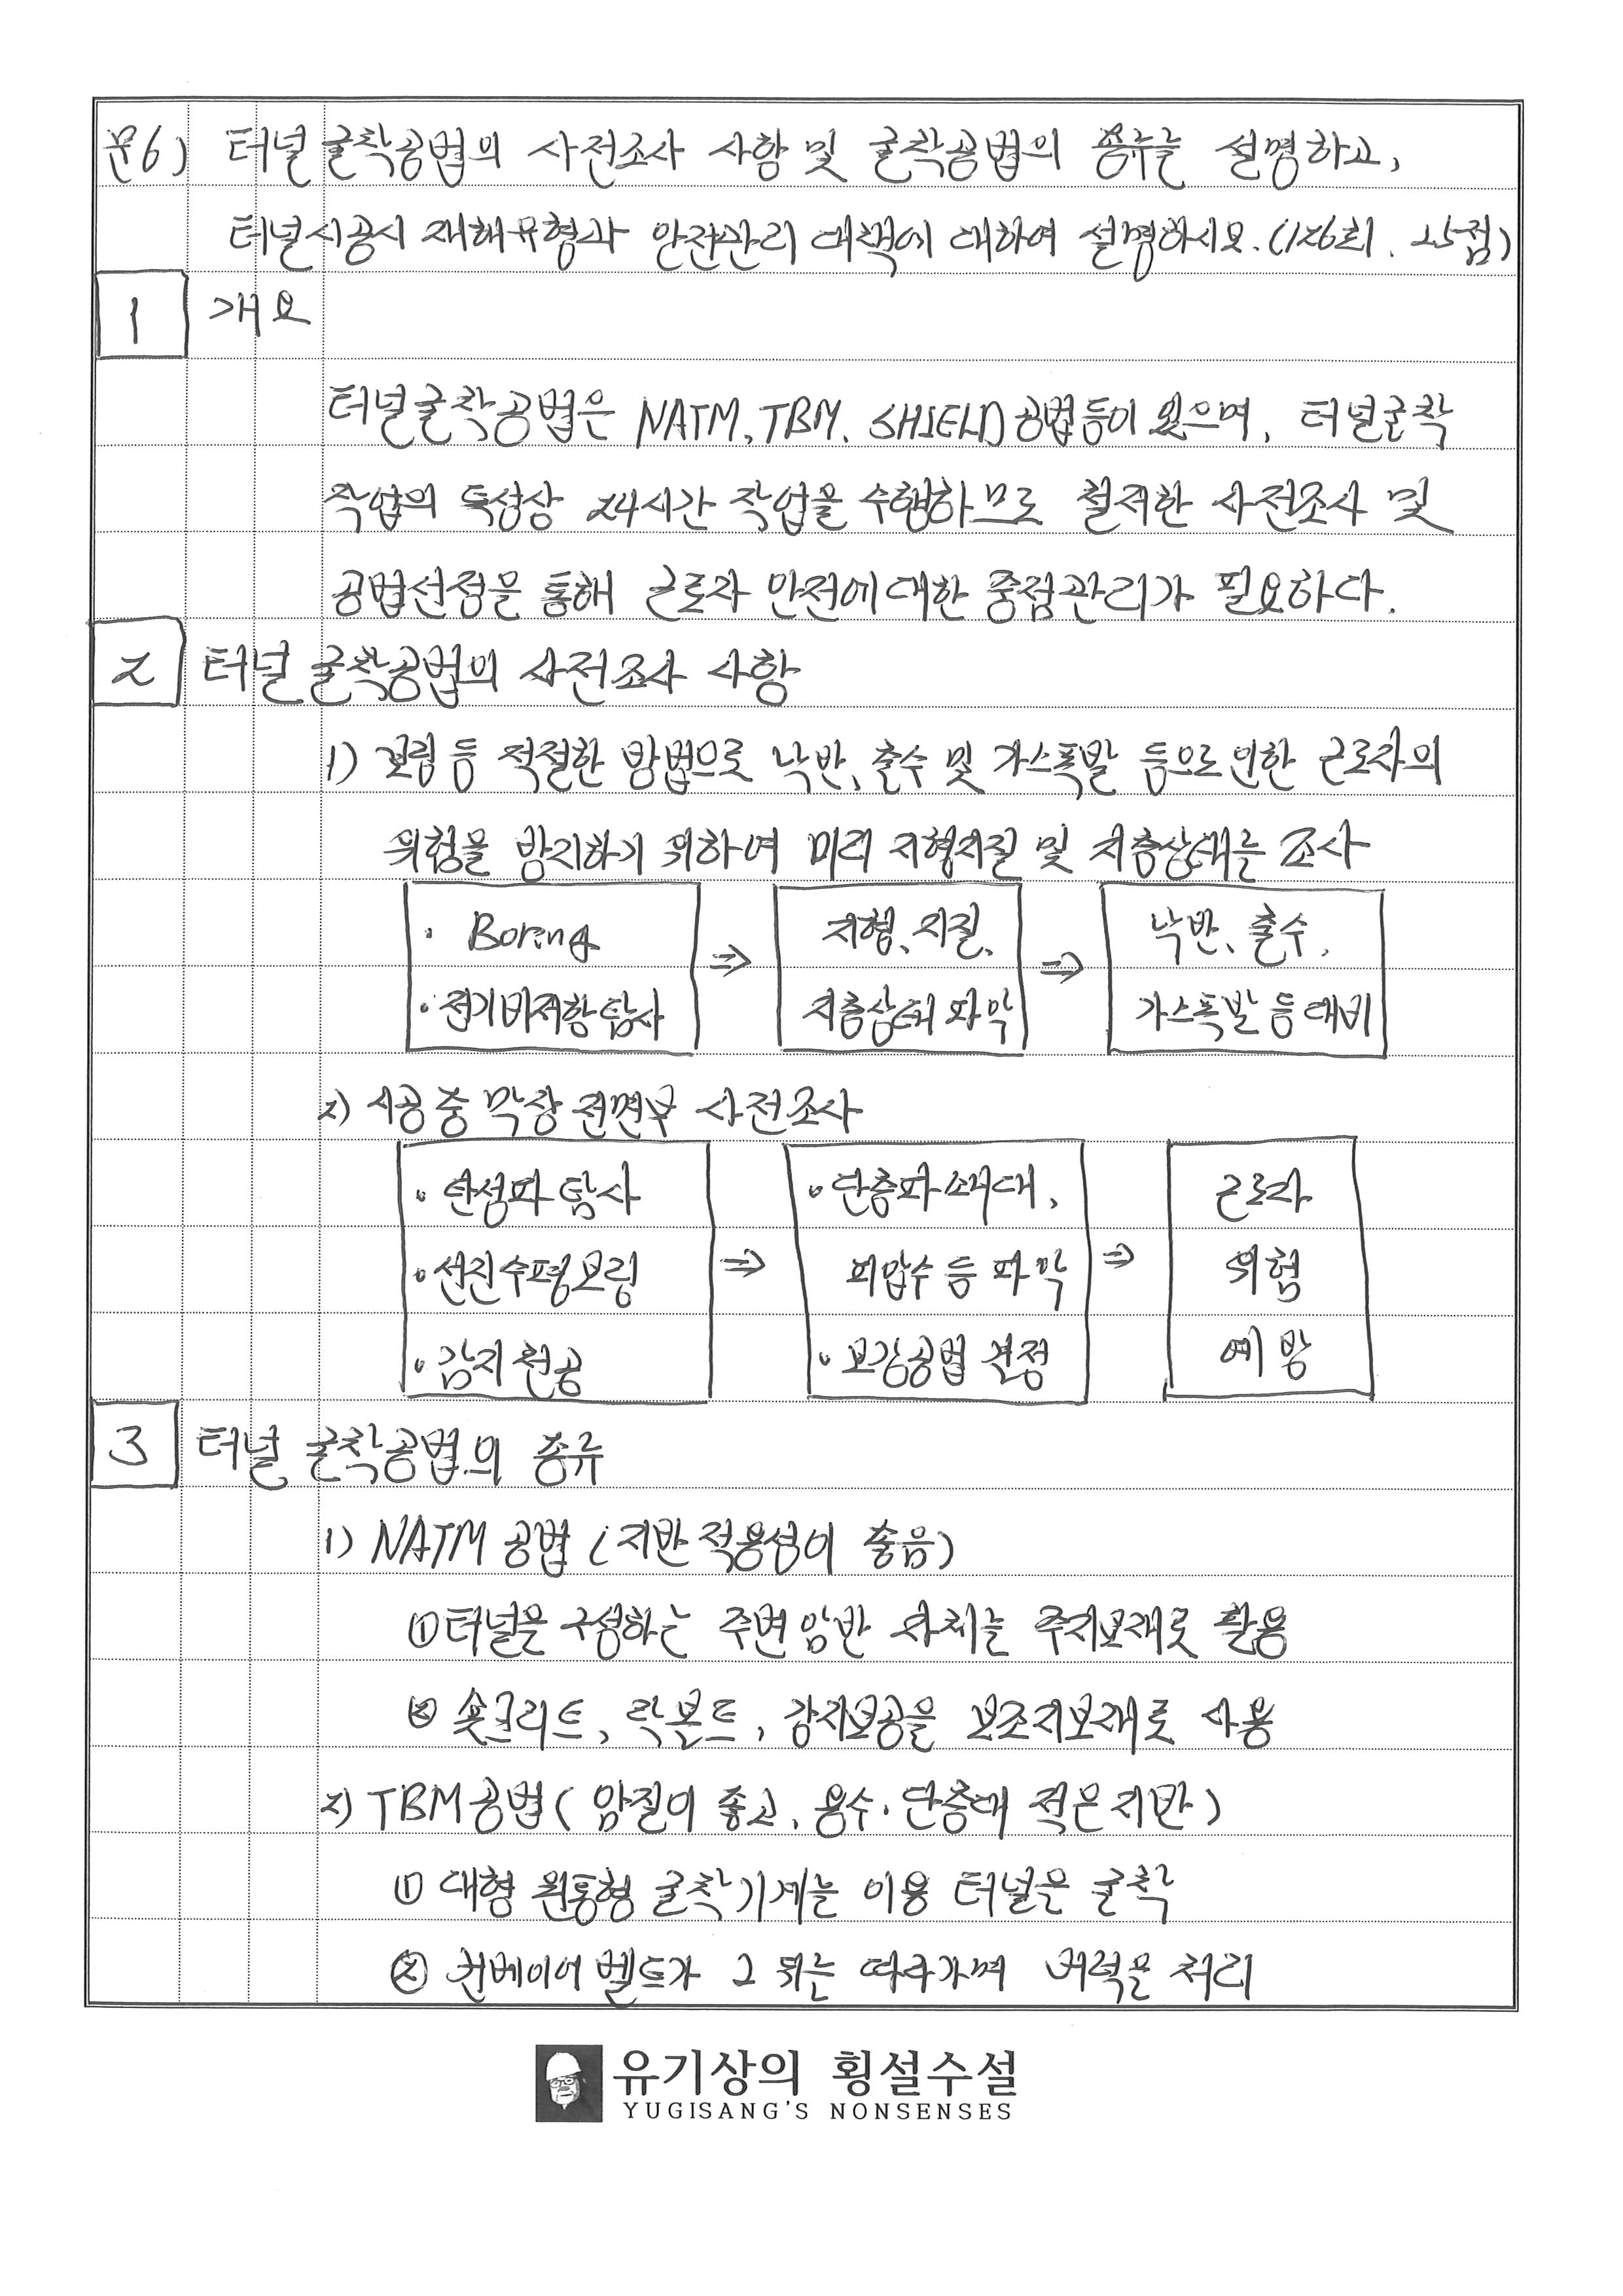 문6) 터널 굴착공법의 사전조사 사항 및 굴착공법의 종류를 설명하고,
터널시공시 재해유형과 안전관리 대책에 대하여 설명하시오. (126회. 25점)
1 개요
터널굴착공법은 NATM, TBM, SHIELD 공법등이 있으며, 터널굴착
작업의 특성상 24시간 작업을 수행하므로 철저한 사전조사 및
공법선정을 통해 근로자 안전에 대한 중점관리가 필요하다.
2 터널 굴착공법의 사전조사 사항
1) 보링 등 적절한 방법으로 낙반, 출수 및 가스폭발 등으로 인한 근로자의
위험을 방지하기 위하여 미리 지형지질 및 지층상태를 조사
· Boring ⇒ 지형, 지질, ⇒ 낙반, 출수,
· 전기비저항탐사 지층상태 파악 가스폭발 등 대비
2) 시공중 막장 전면부 사전조사
· 탄성파 탐사 · 단층파쇄대, 근로자
· 선진수평보링 ⇒ 피압수 등 파악 ⇒ 위험
· 감지천공 · 보강공법 결정 예방
3 터널 굴착공법의 종류
1) NATM 공법 (지반 적용성이 좋음)
① 터널을 구성하는 주변 암반 자체를 주지보재로 활용
② 숏크리트, 락볼트, 강지보공을 보조지보재로 사용
2) TBM 공법 (암질이 좋고, 용수·단층대 적은 지반)
① 대형 원통형 굴착기계를 이용 터널을 굴착
② 컨베이어 벨트가 그 뒤를 따라가며 버력을 처리
유기상의 횡설수설
YUGISANG'S NONSENSES